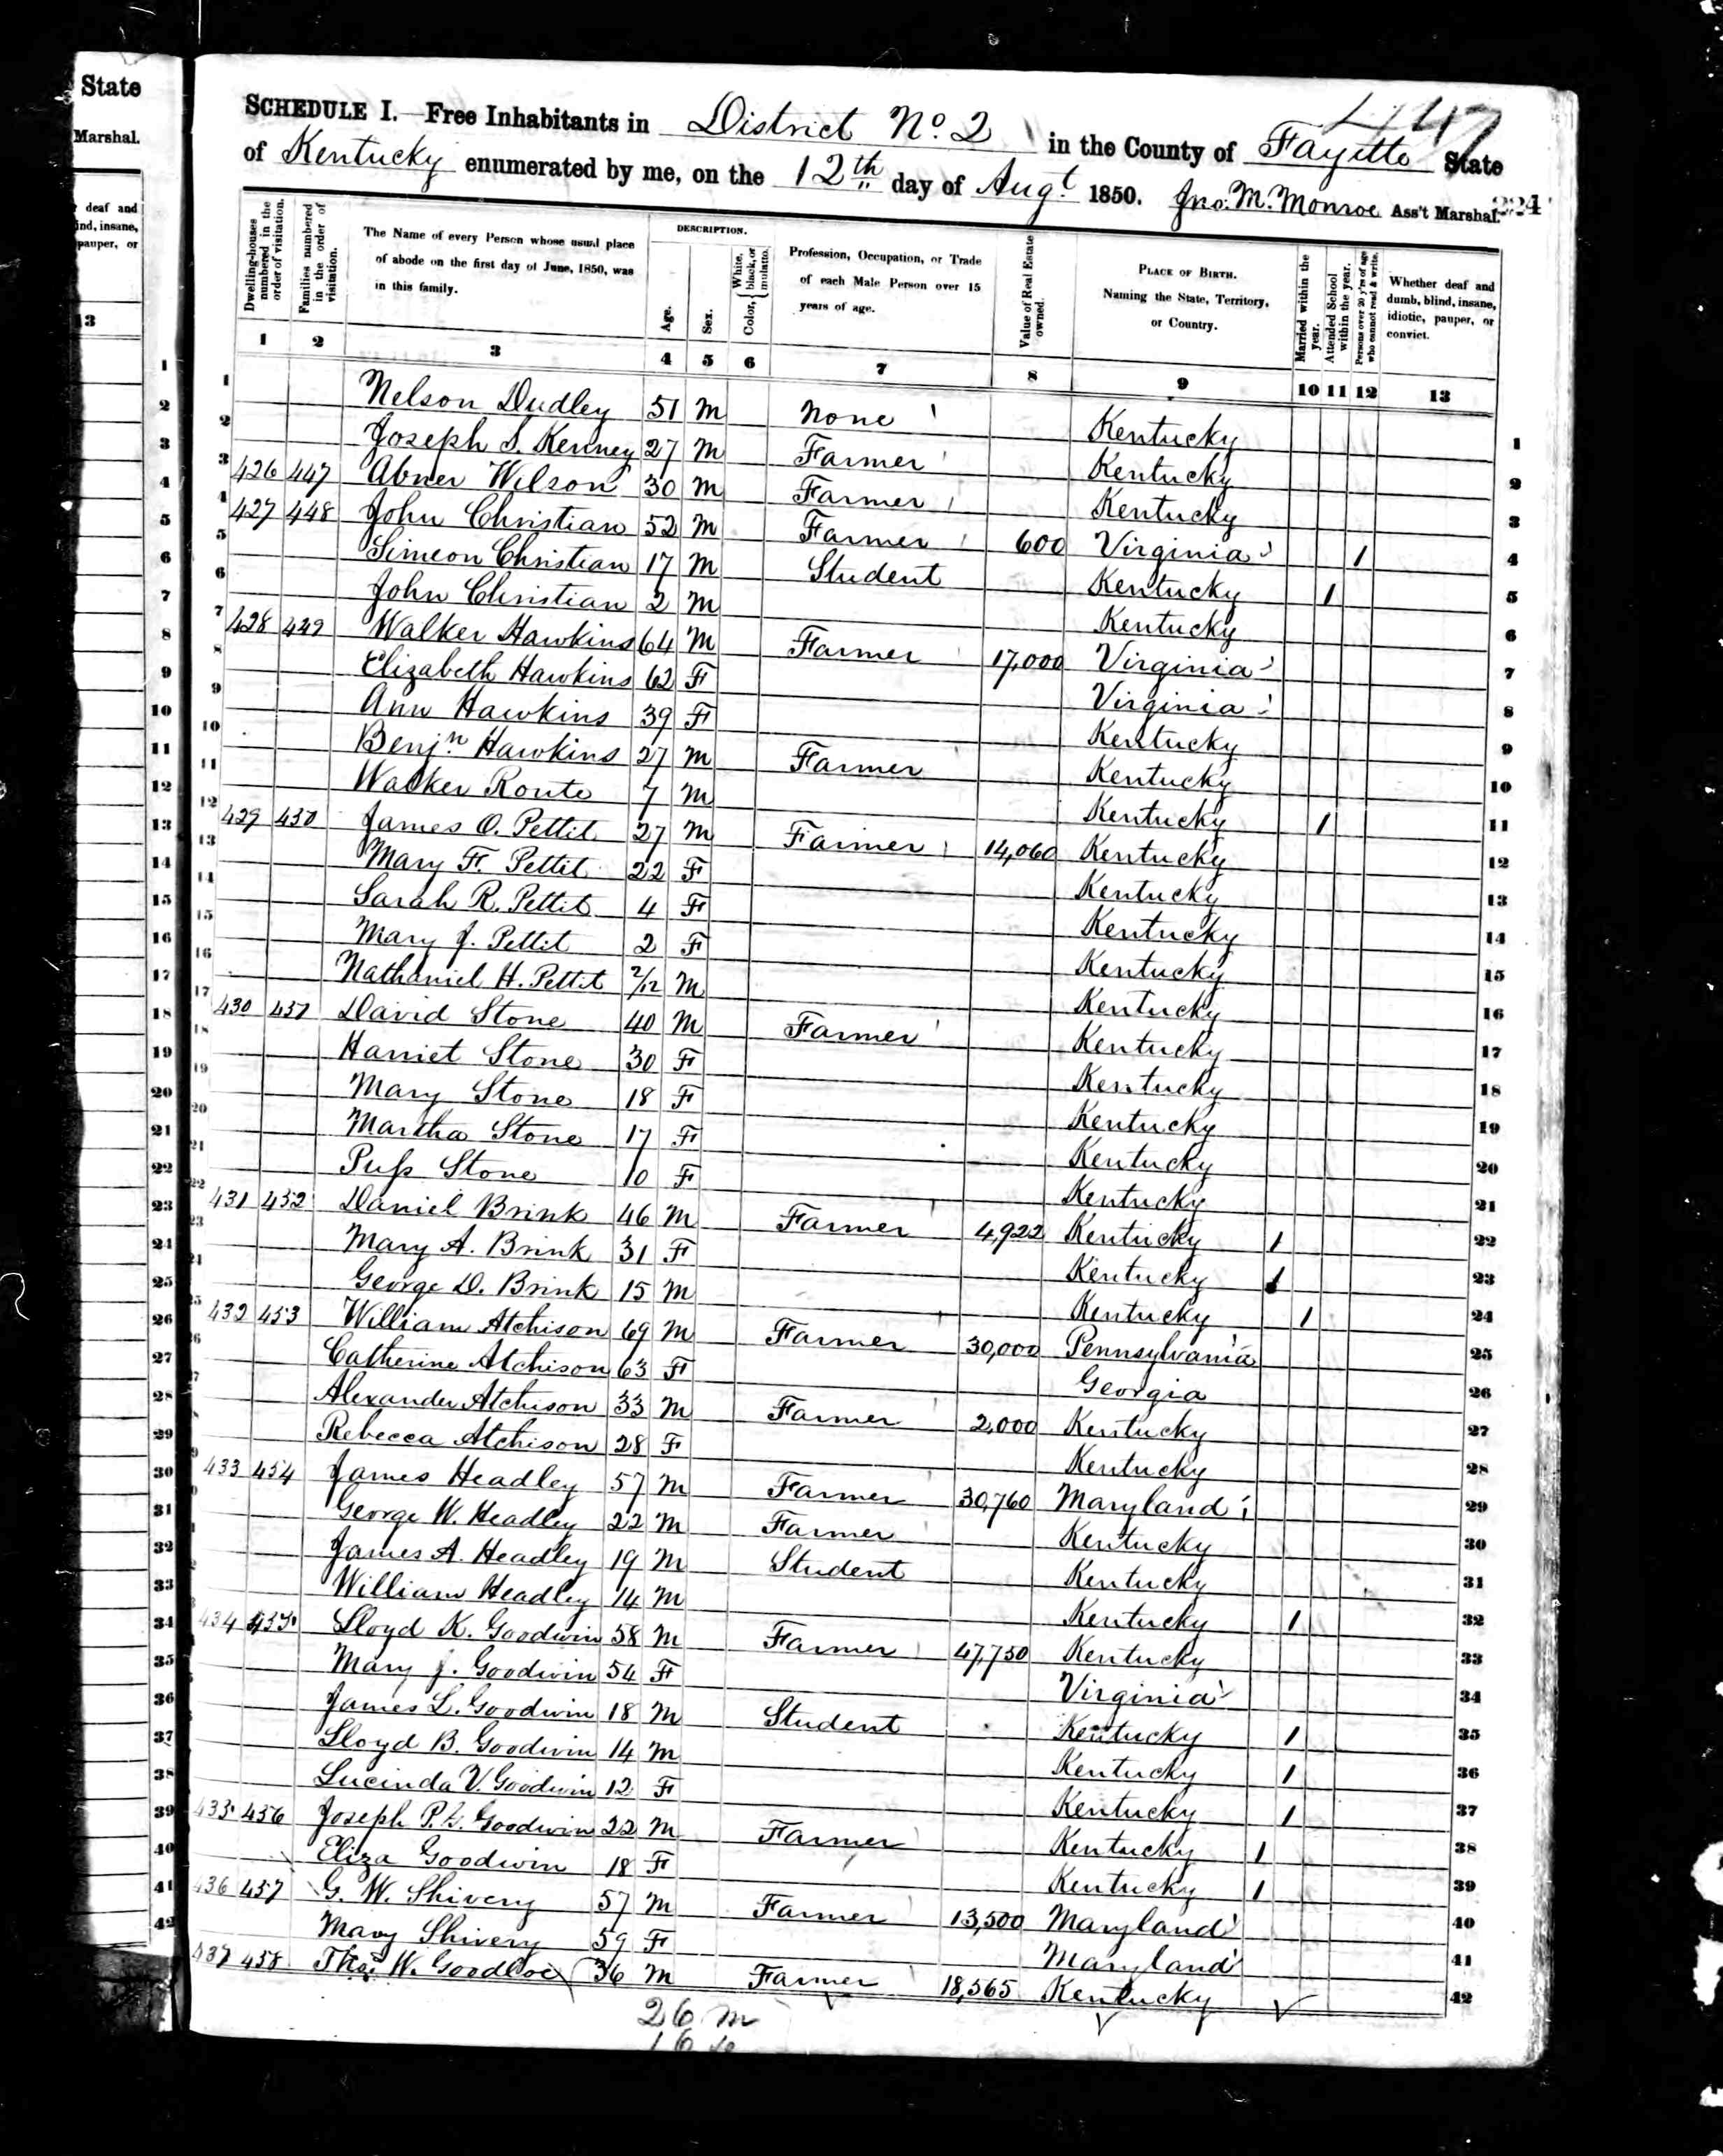 State
Marshal.
deaf and
ind, insane,
pauper, or
13
1747
SCHEDULE I.—Free Inhabitants in District No. 2 in the County of Fayette State
of Kentucky enumerated by me, on the 12th day of Augt 1850. Jno. M. Monroe Ass't Marshal.
224
Dwelling-houses numbered in the order of visitation.
Families numbered in the order of visitation.
The Name of every Person whose usual place of abode on the first day of June, 1850, was in this family.
DESCRIPTION.
Age.
Sex.
Color, { White, black, or mulatto.
Profession, Occupation, or Trade of each Male Person over 15 years of age.
Value of Real Estate owned.
PLACE OF BIRTH. Naming the State, Territory, or Country.
Married within the year.
Attended School within the year.
Persons over 20 y'rs of age who cannot read & write.
Whether deaf and dumb, blind, insane, idiotic, pauper, or convict.
1 2 3 4 5 6 7 8 9 10 11 12 13
1 Nelson Dudley 51 M None Kentucky 1
2 Joseph S. Kenney 27 M Farmer Kentucky 2
3 426 447 Abner Wilson 30 M Farmer Kentucky 3
4 427 448 John Christian 52 M Farmer 600 Virginia 1 4
5 Simeon Christian 17 M Student Kentucky 1 5
6 John Christian 2 M Kentucky 6
7 428 449 Walker Hawkins 64 M Farmer 17,000 Virginia 7
8 Elizabeth Hawkins 62 F Virginia 8
9 Ann Hawkins 39 F Kentucky 9
10 Benjn Hawkins 27 M Farmer Kentucky 10
11 Walker Route 7 M Kentucky 1 11
12 429 450 James O. Pettit 27 M Farmer 14,060 Kentucky 12
13 Mary F. Pettit 22 F Kentucky 13
14 Sarah R. Pettit 4 F Kentucky 14
15 Mary J. Pettit 2 F Kentucky 15
16 Nathaniel H. Pettit 2/12 M Kentucky 16
17 430 451 David Stone 40 M Farmer Kentucky 17
18 Harriet Stone 30 F Kentucky 18
19 Mary Stone 18 F Kentucky 19
20 Martha Stone 17 F Kentucky 20
21 Puss Stone 10 F Kentucky 21
22 431 452 Daniel Brink 46 M Farmer 4,922 Kentucky 1 22
23 Mary A. Brink 31 F Kentucky 1 23
24 George D. Brink 15 M Kentucky 1 24
25 432 453 William Atchison 69 M Farmer 30,000 Pennsylvania 25
26 Catherine Atchison 63 F Georgia 26
27 Alexander Atchison 33 M Farmer 2,000 Kentucky 27
28 Rebecca Atchison 28 F Kentucky 28
29 433 454 James Headley 57 M Farmer 30,760 Maryland 29
30 George W. Headley 22 M Farmer Kentucky 30
31 James A. Headley 19 M Student Kentucky 31
32 William Headley 14 M Kentucky 1 32
33 434 455 Lloyd K. Goodwin 58 M Farmer 47,750 Kentucky 33
34 Mary J. Goodwin 54 F Virginia 34
35 James L. Goodwin 18 M Student Kentucky 1 35
36 Lloyd B. Goodwin 14 M Kentucky 1 36
37 Lucinda V. Goodwin 12 F Kentucky 1 37
38 435 456 Joseph P. Goodwin 22 M Farmer Kentucky 1 38
39 Eliza Goodwin 18 F Kentucky 1 39
40 436 457 G. W. Shivery 57 M Farmer 13,500 Maryland 40
41 Mary Shivery 59 F Maryland 41
42 437 458 Thos. W. Goodloe 36 M Farmer 18,565 Kentucky 42
26 M
16 fe